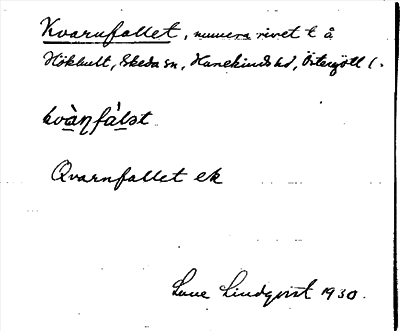 Kvarnfallet, numera rivet t å
Hökhult, Skeda sn, Hanekinds hd, Östergötl l.
kvàn̥fàlət
Qvarnfallet ek
Sune Lindqvist 1930.